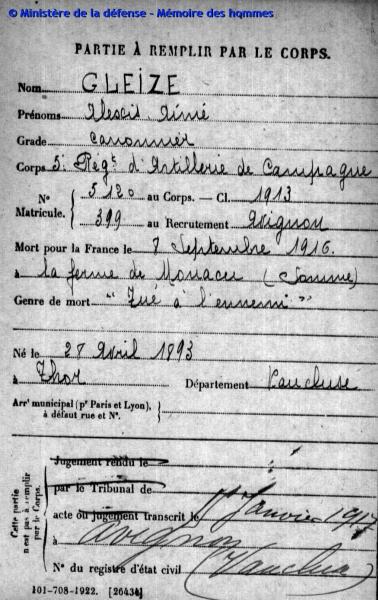 © Ministère de la défense - Mémoire des hommes
PARTIE À REMPLIR PAR LE CORPS.
Nom GLEIZE
Prénoms Alexis Aimé
Grade canonnier
Corps 5e Régt d'Artillerie de Campagne
N° Matricule. 5120 au Corps. — Cl. 1913
399 au Recrutement Avignon
Mort pour la France le 8 Septembre 1916.
à la ferme de Monacu (Somme)
Genre de mort "Tué à l'ennemi"
Né le 28 Avril 1893
à Thor Département Vaucluse
Arrt municipal (pr Paris et Lyon),
à défaut rue et N°.
Cette partie
n'est pas à remplir
par le Corps.
Jugement rendu le
par le Tribunal de
acte ou jugement transcrit le Janvier 1917
à Avignon
(Vaucluse)
N° du registre d'état civil
101-708-1922. [26434]